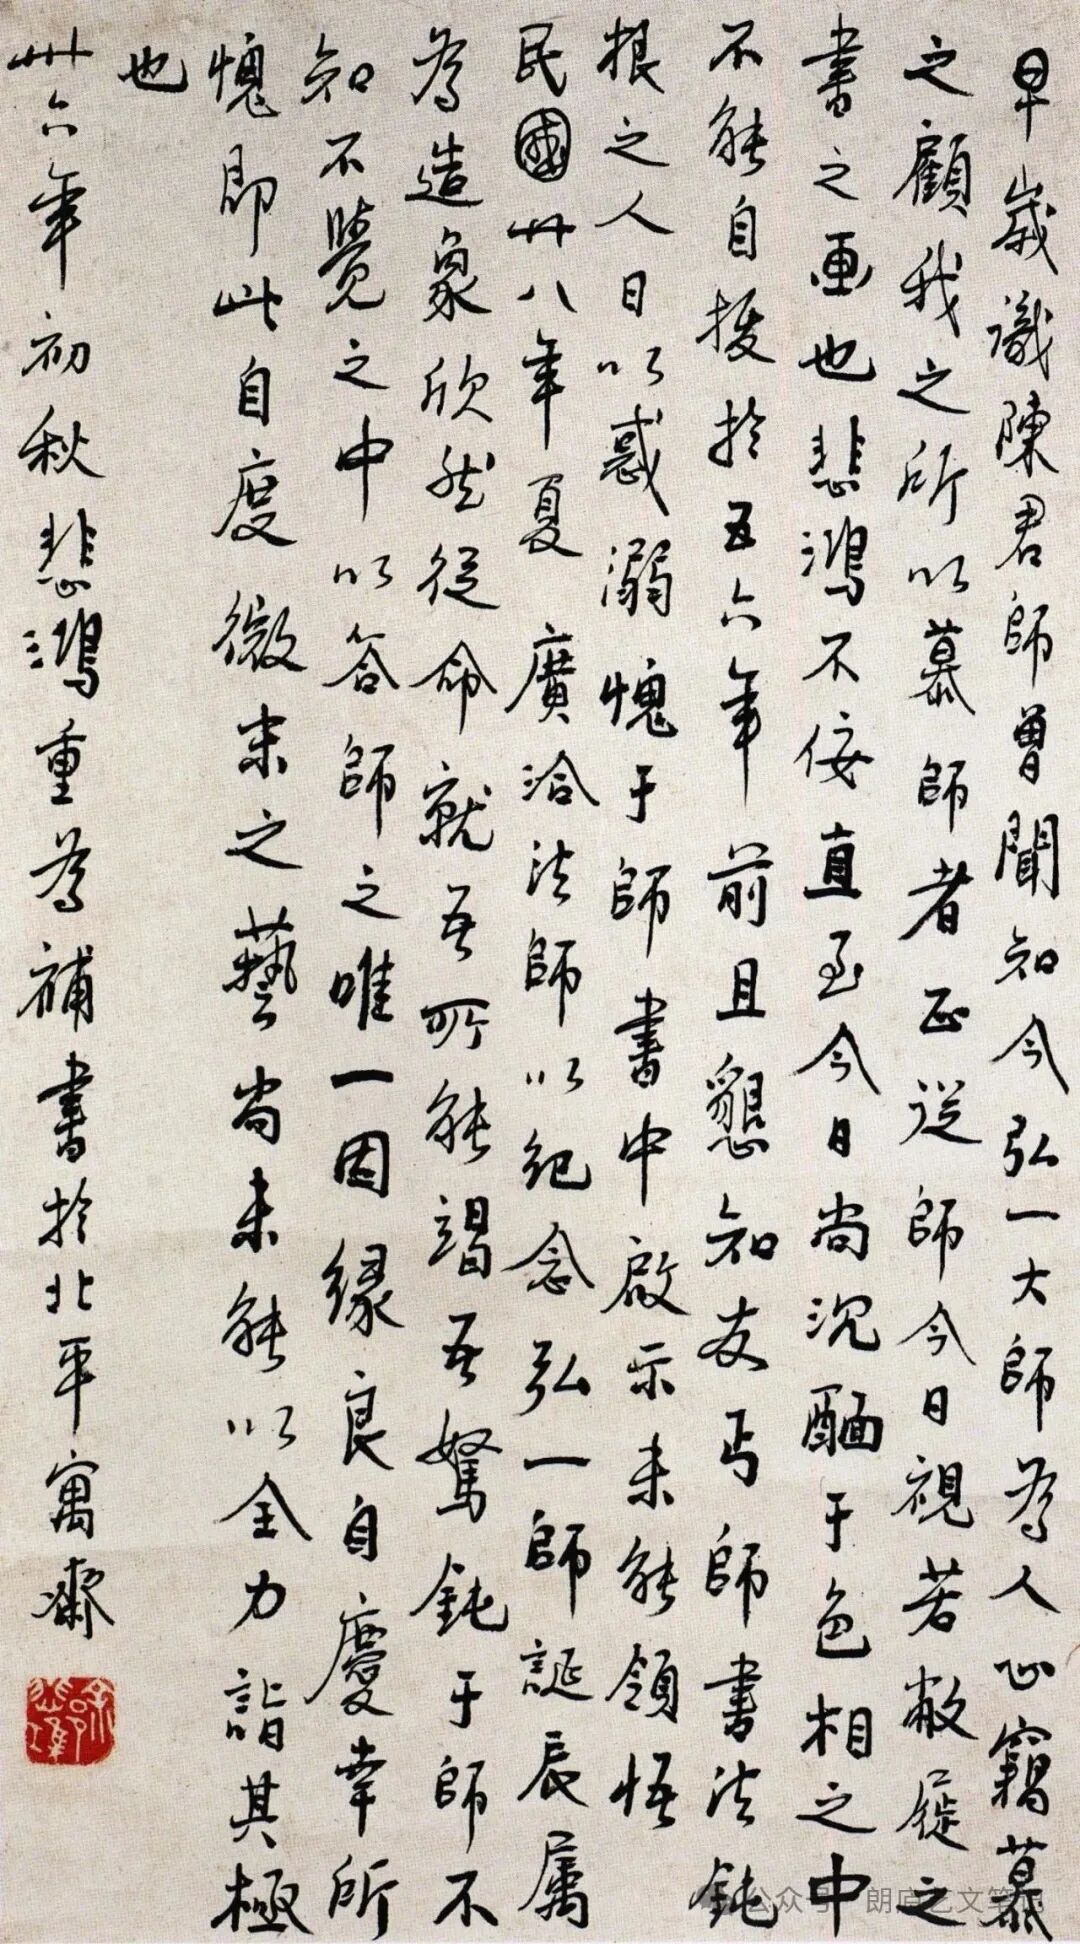 早歲識陳君師曾聞知今弘一大師為人心竊慕
之顧我之所以慕師者正從師今日視若敝屣之
書之画也悲鴻不佞直至今日尚沉酣于色相之中
不能自拔於五六年前且懇知友丐師書法鈍
根之人日以惑溺愧于師書中啟示未能領悟
民國卅八年夏廣洽法師以紀念弘一師誕辰屬
為造象欣然從命就吾所能竭吾駑鈍于師不
知不覺之中以答師之唯一因緣良自慶幸所
愧即此自度微末之藝尚未能以全力詣其極
也
卅六年初秋悲鴻重為補書於北平寓齋
公众号 朗